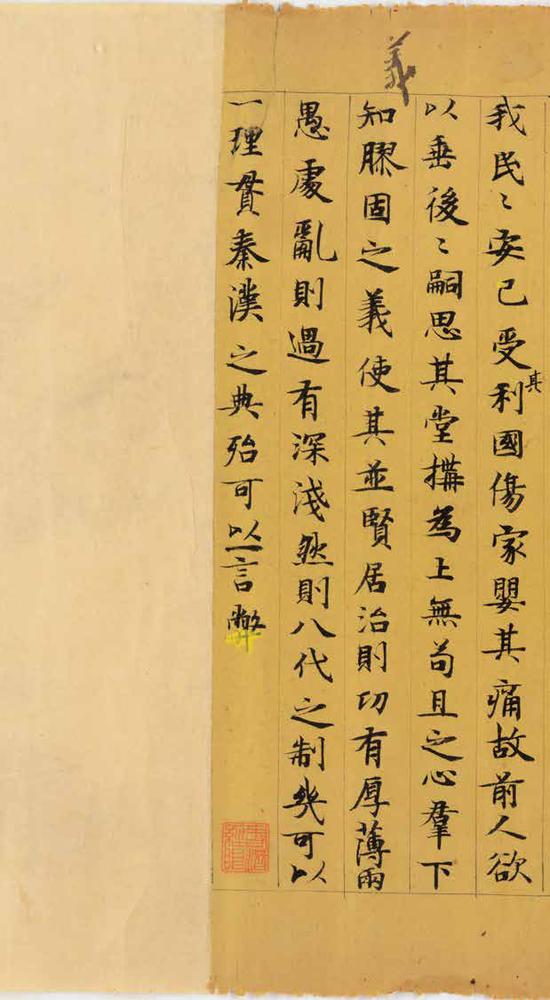 義
我民〻安已受其利國傷家嬰其痛故前人欲
以垂後〻嗣思其堂搆為上無苟且之心羣下
知膠固之義使其並賢居治則功有厚薄兩
愚處亂則過有深淺然則八代之制幾可以
一理貫秦漢之典殆可以一言弊